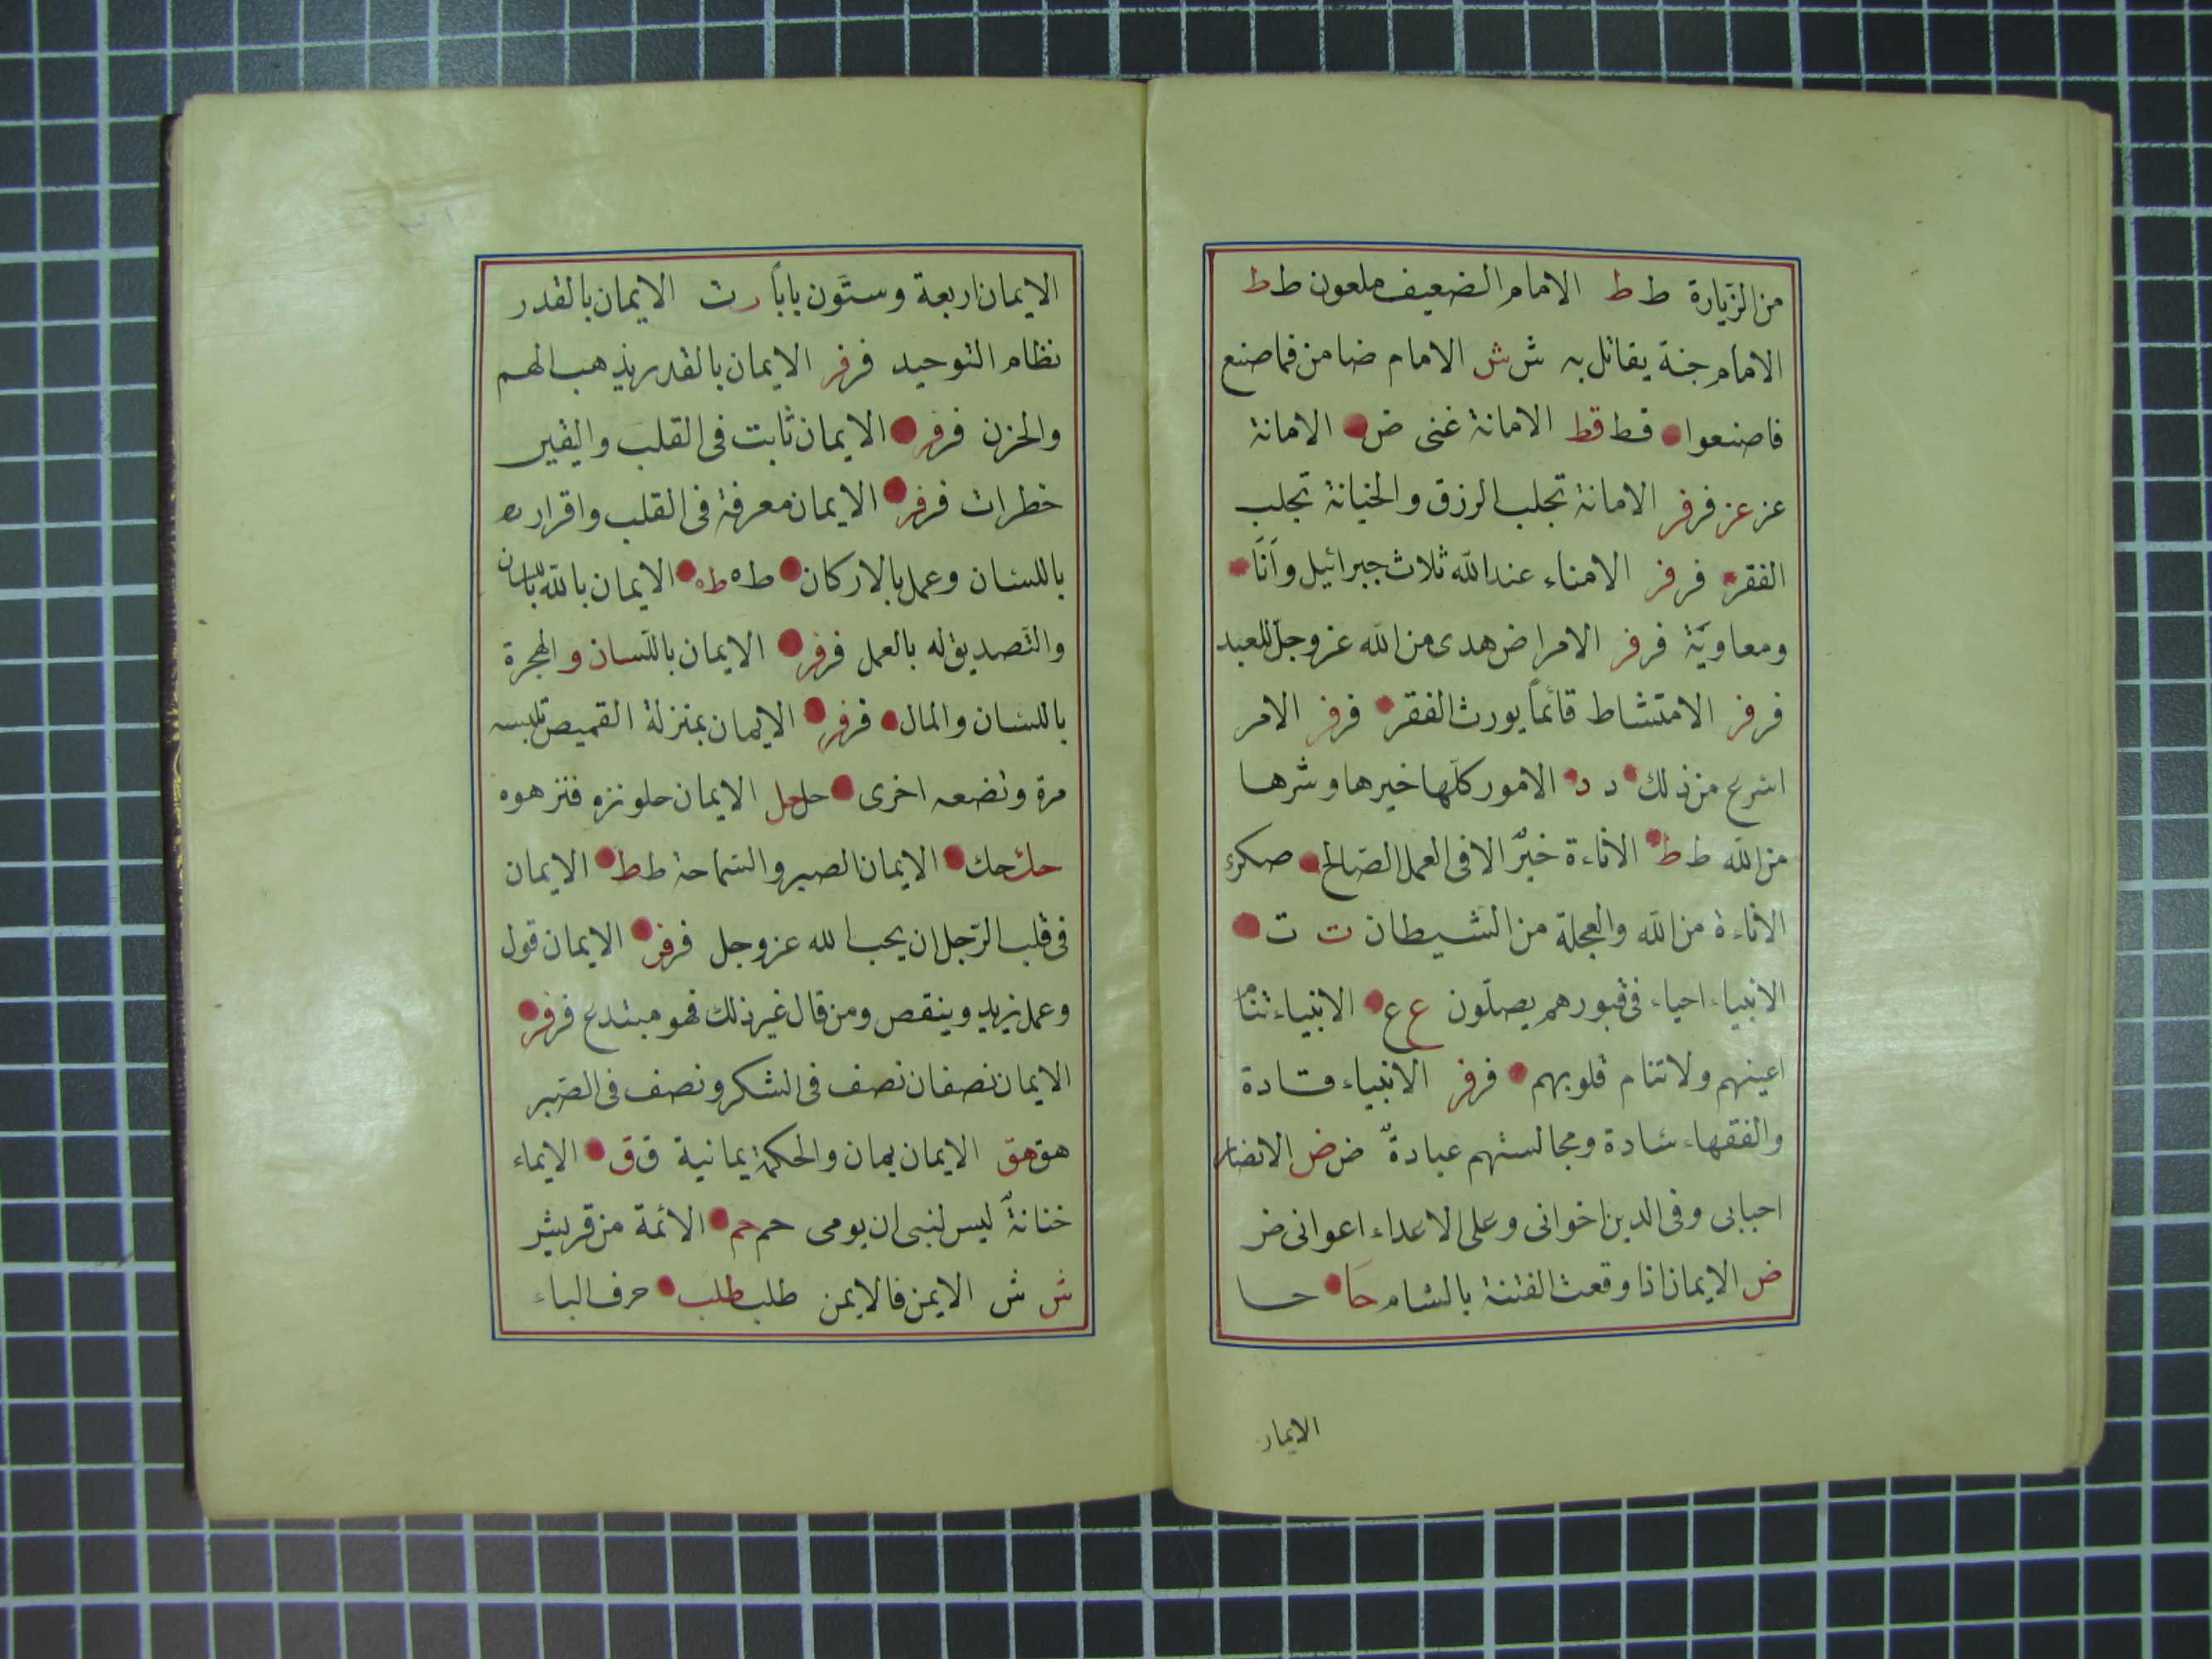 من الزيارة ط ط الامام الضعيف ملعون ط ط
الامام جنة يقاتل به ش ش الامام ضامن فما صنع
فاصنعوا قط قط الامانة غنى ض الامانة
عز عز فر فر الامانة تجلب الرزق والخيانة تجلب
الفقر فر فر الامناء عند الله ثلاث جبرائيل وانا
ومعاوية فر فر الامراض هدى من الله عز وجل للعبد
فر فر الامتشاط قائماً يورث الفقر فر فر الامر
اسرع من ذلك د د الامور كلها خيرها وشرها
من الله ط ط الاناءة خيرٌ الا فى العمل الصالح
الاناءة من الله والعجلة من الشيطان ت ت
الانبياء احياء فى قبورهم يصلّون ع ع الانبياء تنام
اعينهم ولا تنام قلوبهم فر فر الانبياء قادة
والفقهاء سادة ومجالستهم عبادةٌ ض ض الانصار
احبابى وفى الدين اخوانى وعلى الاعداء اعوانى ض
ض الايمان اذا وقعت الفتنة بالشام حا حا
الايمان
الايمان اربعة وستّون باباً ت الايمان بالقدر
نظام التوحيد فر فر الايمان بالقدر يذهب الهم
والحزن فر فر الايمان ثابت فى القلب واليقين
خطرات فر فر الايمان معرفة فى القلب واقرار
باللسان وعمل بالاركان طه طه الايمان بالله باللسان
والتصديق له بالعمل فر فر الايمان باللسان والهجرة
باللسان والمال فر فر الايمان بمنزلة القميص تلبسه
مرة وتضعه اخرى حل حل الايمان حلو نزه فنزهوه
حك حك الايمان الصبر والسّماحة ط ط الايمان
فى قلب الرّجل ان يحب الله عز وجل فر فر الايمان قول
وعمل يزيد وينقص ومن قال غير ذلك فهو مبتدع فر فر
الايمان نصفان نصف فى الشكر ونصف فى الصّبر
هق هق الايمان يمان والحكمة يمانية ق ق الايماء
خنانةٌ ليس لنبى ان يومى حم حم الائمة من قريش
ش ش الايمن فالايمن طلب طلب حرف الباء